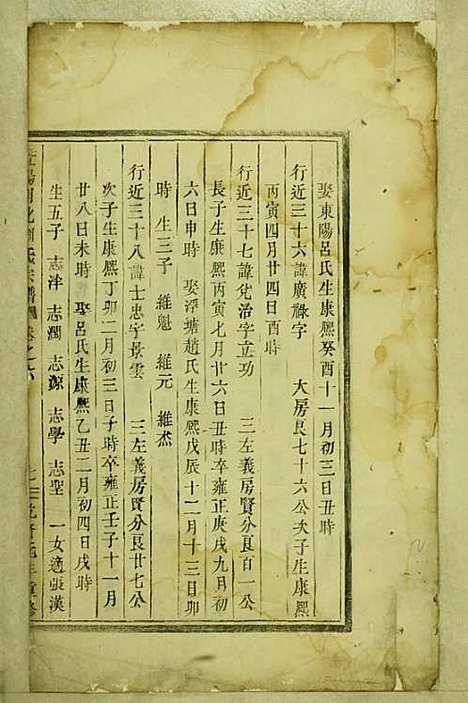 娶東陽呂氏生康熙癸酉十一月初三日丑時
行近三十六諱廣祿字 大房良七十六公次子生康熙
丙寅四月廿四日酉時
行近三十七諱兌治字立功 三左義房賢分良百一公
長子生康熙丙寅七月廿六日丑時卒雍正庚戌九月初
六日申時 娶潭塘趙氏生康熙戊辰十二月十三日卯
時 生三子 維魁 維元 維杰
行近三十八諱士忠字景雲 三左義房賢分良廿七公
次子生康熙丁卯二月初三日子時卒雍正壬子十一月
廿八日未時 娶呂氏生康熙乙丑二月初四日戌時
生五子 志津 志潤 志源 志學 志聖 一女適張漢
氏宗譜 卷之